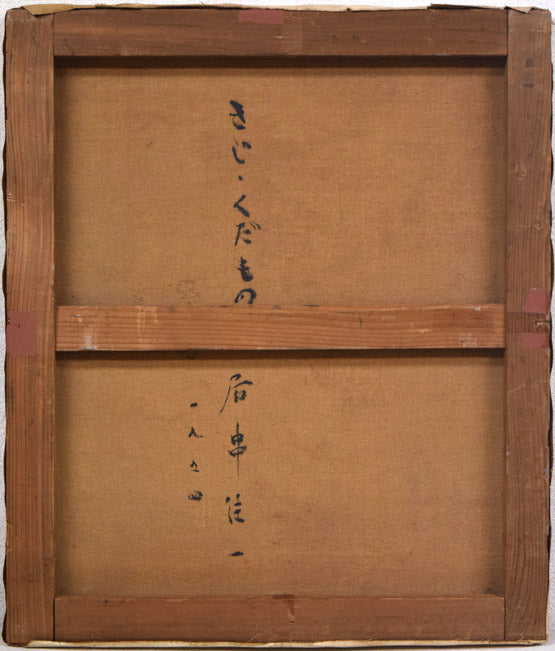 きじ・くだもの
居串佳一
一九五四